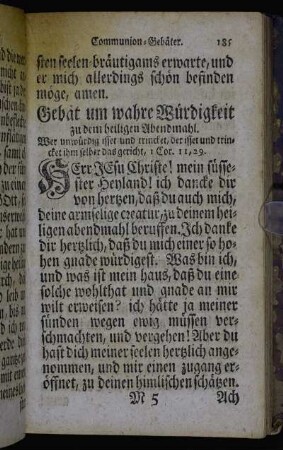 Communion-Gebäter. 185
sten seelen-bräutigams erwarte, und
er mich allerdings schön befinden
möge, amen.
Gebät um wahre Würdigkeit
zu dem heiligen Abendmahl.
Wer unwürdig isset und trincket, der isset und trin-
cket ihm selber das gericht, 1 Cor. 11, 29.
HErr JEsu Christe! mein süsse-
ster Heyland! ich dancke dir
von hertzen, daß du auch mich,
deine armselige creatur, zu deinem hei-
ligen abendmahl beruffen. Ich dancke
dir hertzlich, daß du mich einer so ho-
hen gnade würdigest. Was bin ich,
und was ist mein haus, daß du eine
solche wohlthat und gnade an mir
wilt erweisen? ich hätte ja meiner
sünden wegen ewig müssen ver-
schmachten, und vergehen! Aber du
hast dich meiner seelen hertzlich ange-
nommen, und mir einen zugang er-
öffnet, zu deinen himlischen schätzen.
M 5 Ach